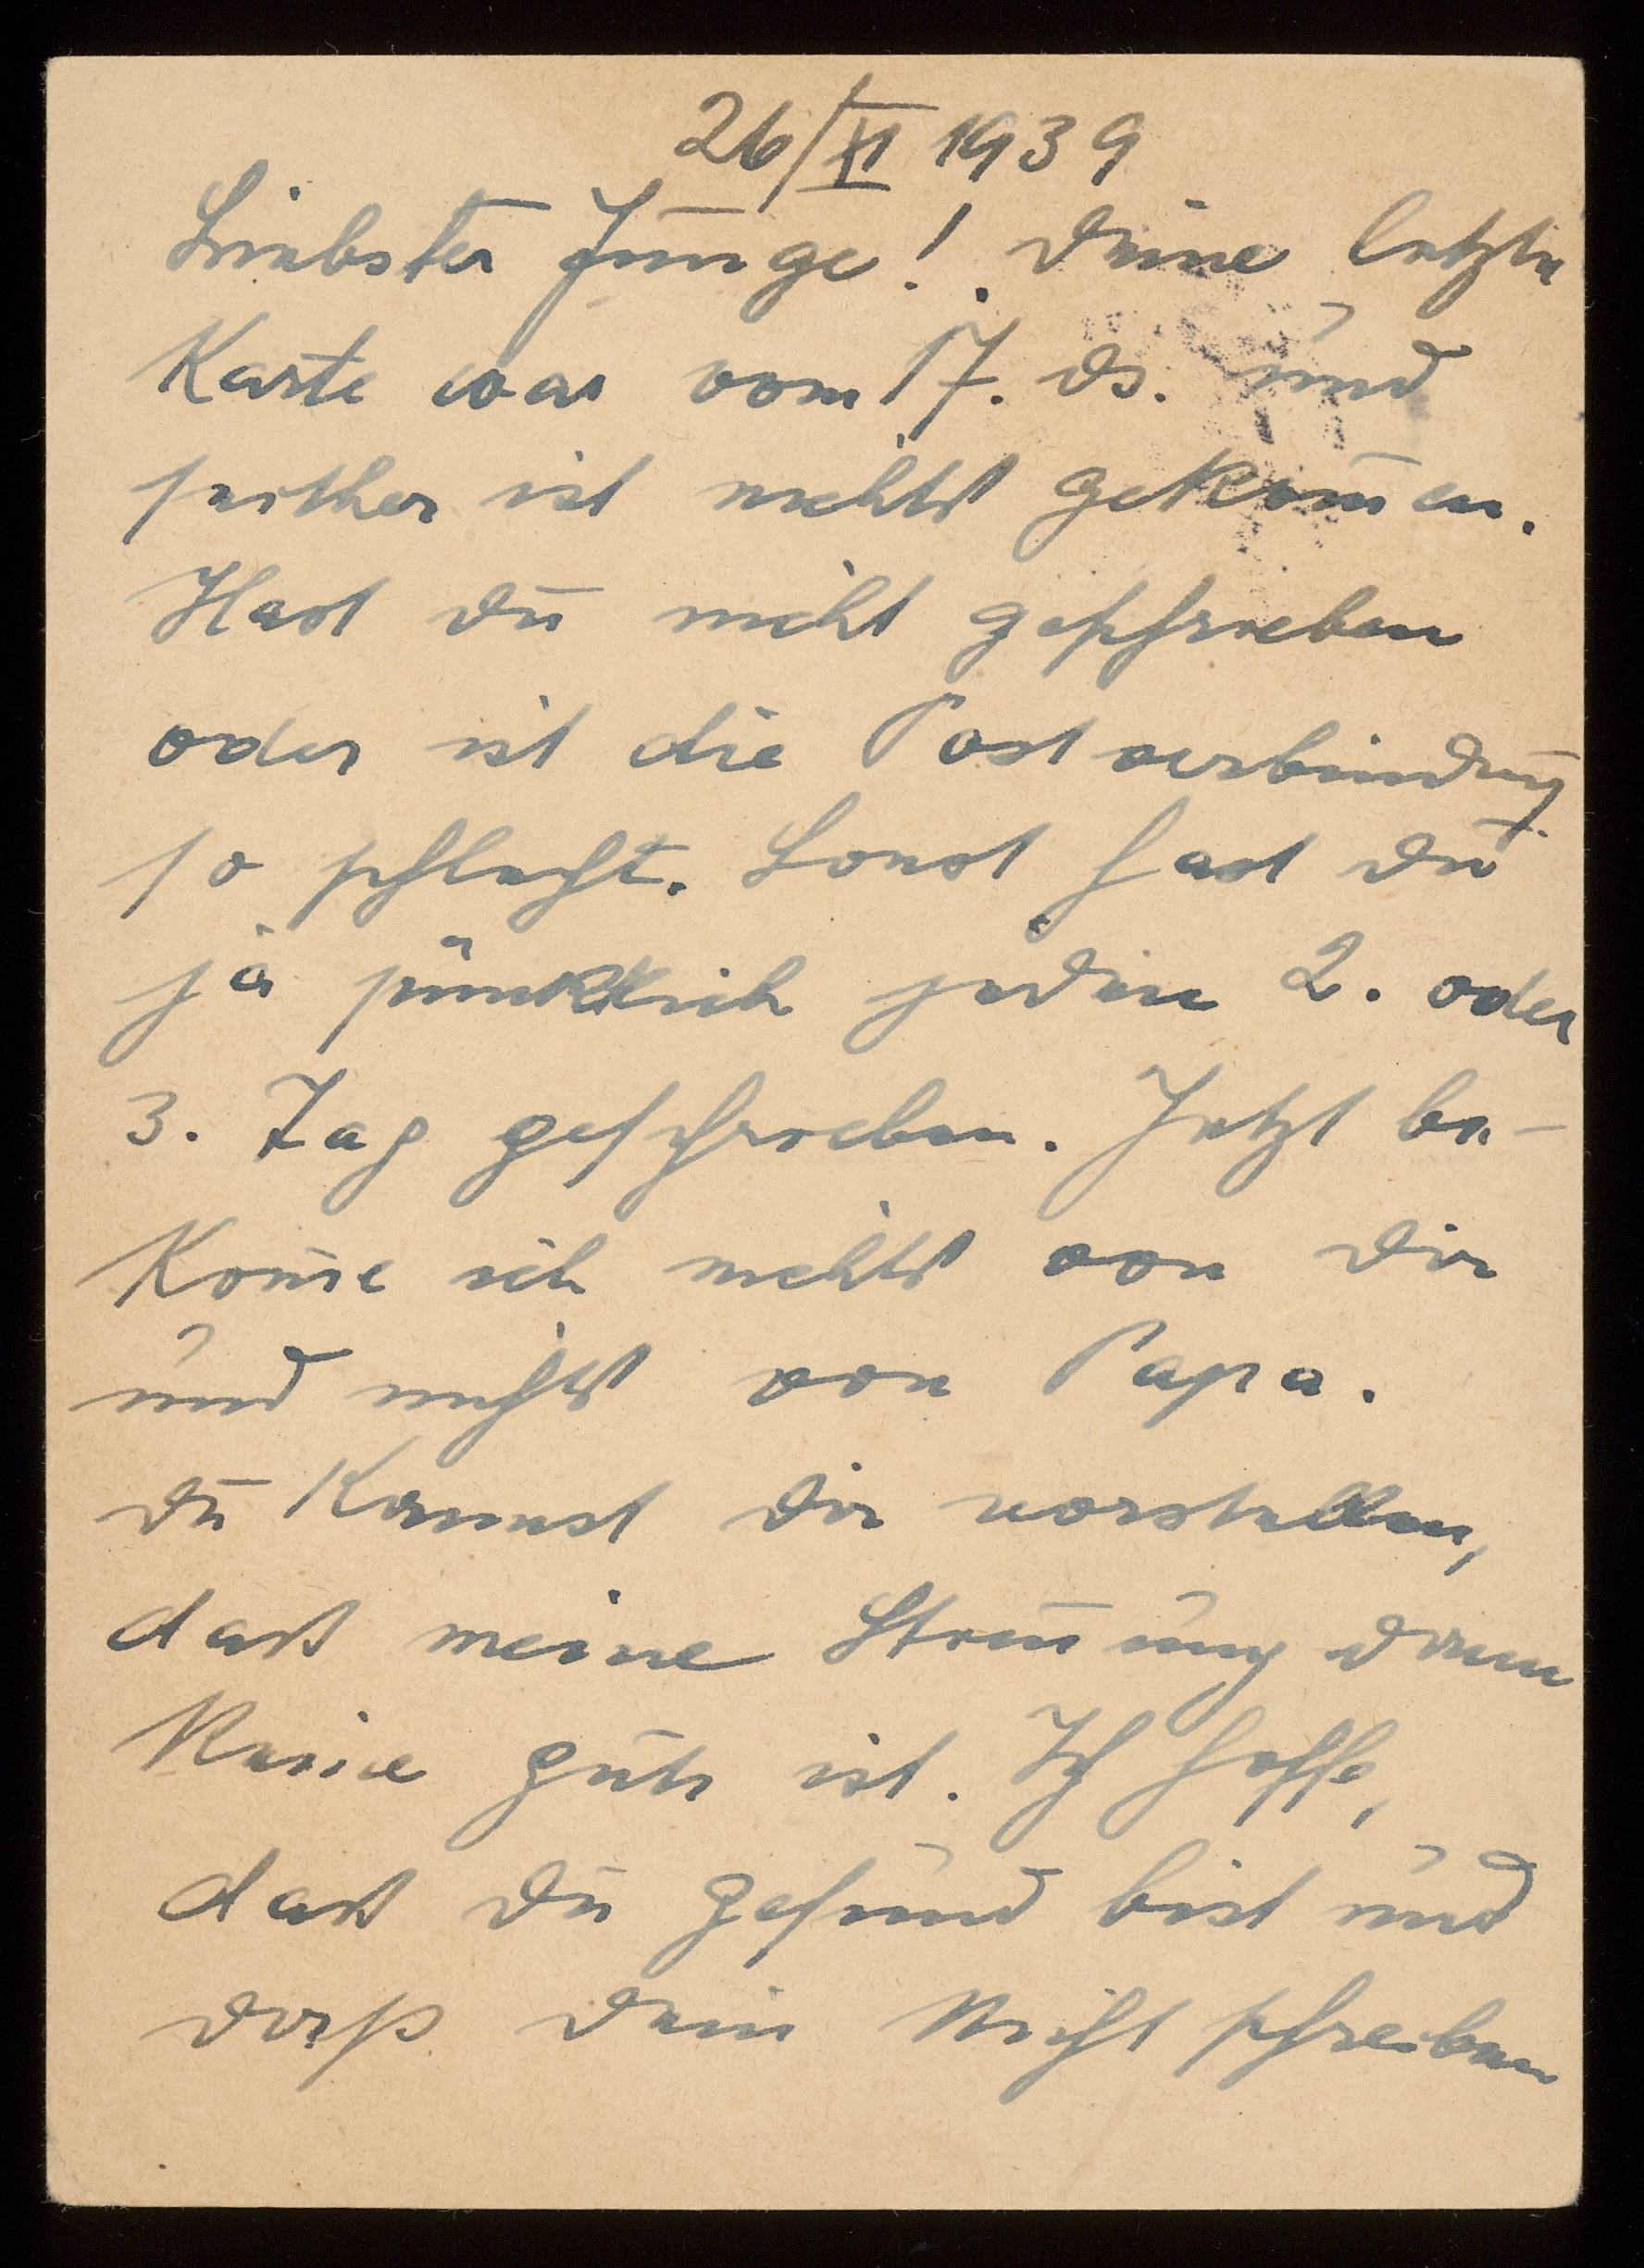 26/XI 1939
Liebster Junge! Deine letzte
Karte war vom 17. ds. und
seither ist nichts gekom̄en.
Hast du nicht geschrieben
oder ist die Postverbindung
so schlecht. Sonst hast du
ja pünktlich jeden 2. oder
3. Tag geschrieben. Jetzt be-
kom̄e ich nichts von dir
und nichts von Papa.
du kannst dir vorstellen,
daß meine Stim̄ung dann
keine gute ist. Ich hoffe,
daß du gesund bist und
daß dein Nichtschreiben